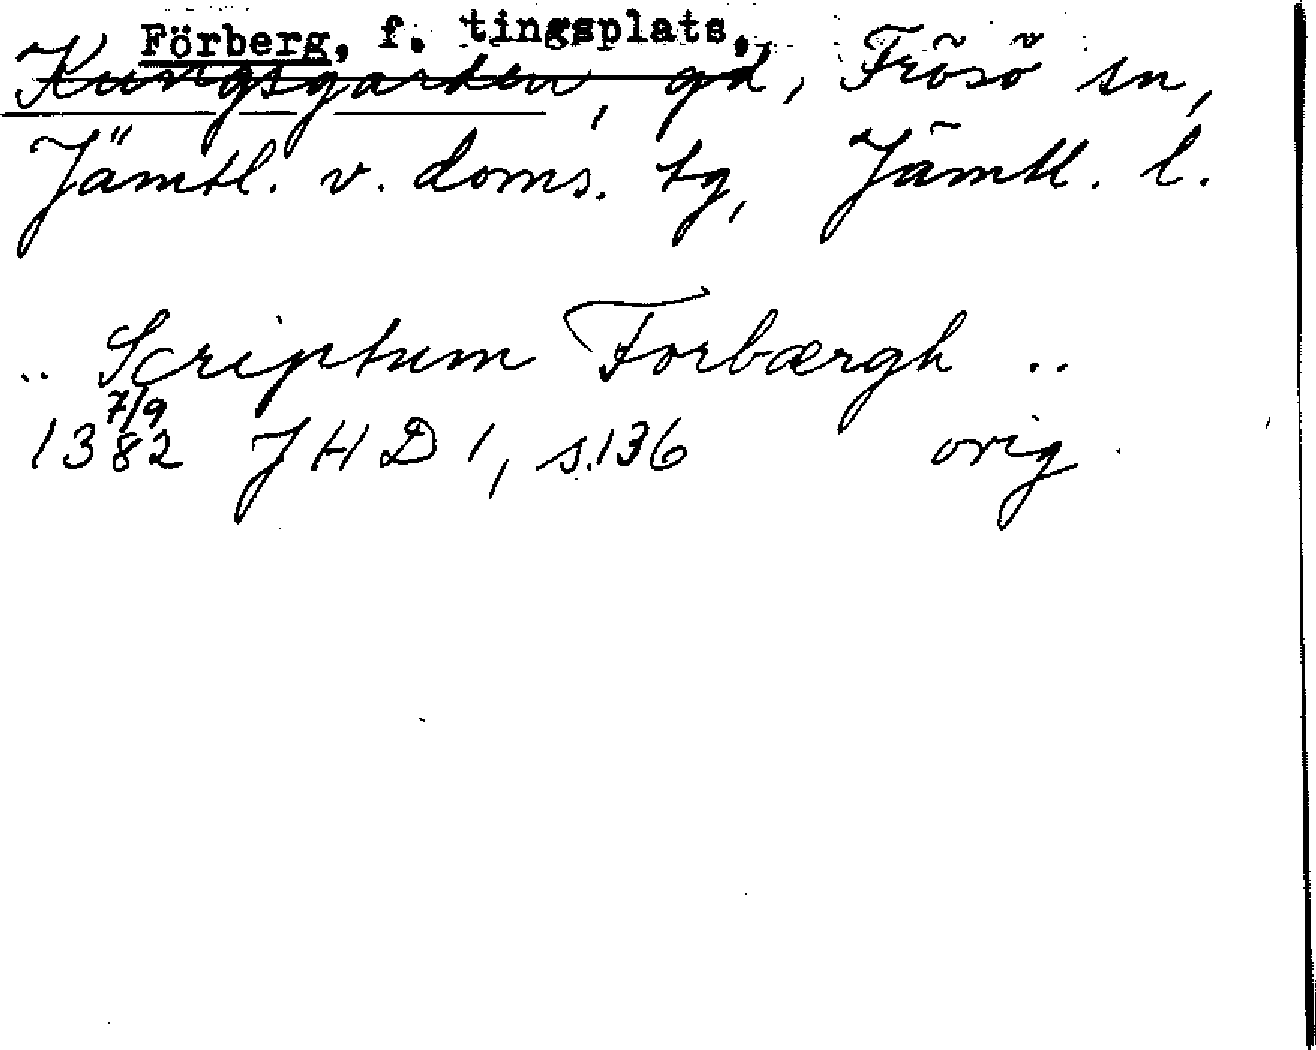 Förberg, f. tingsplats,
Kungsgarden, gd, Frösö sn,
Jämtl. v. doms. tg, Jämtl. l.
.. Scriptum Forbærgh ..
7/9
1382 JHD 1, s.136 orig